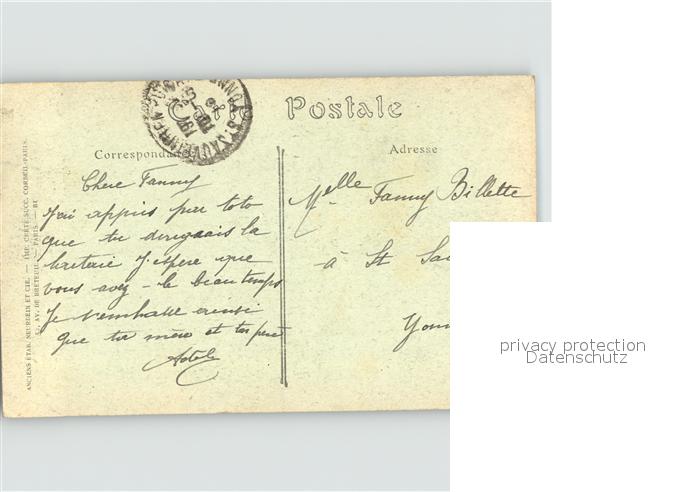 Carte Postale
Correspondance
Adresse
Chere Fanny
J'ai appris par toto
que tu
la
J'espere que
vous avez le beau temps
Je t'embrasse ainsi
que ta mère et ton pere
Melle Fanny Billette
à St Sau
Yonn
ANCIENS ÉTAB. NEURDEIN ET CIE. — IMP. CRÉTÉ SUCC. CORBEIL-PARIS.
52, AV. DE BRETEUIL — PARIS. —
privacy protection
Datenschutz